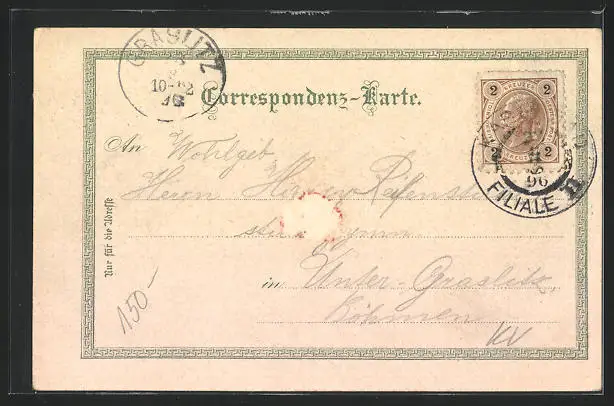 GRASLITZ
10-12
96
Correspondenz-Karte.
2 KREUZER 2
2 KREUZER 2
96
FILIALE
An Wohlgeb
Herrn
stud. gymn
in Unter-Graslitz
Böhmen
Nur für die Adresse
150-
KV